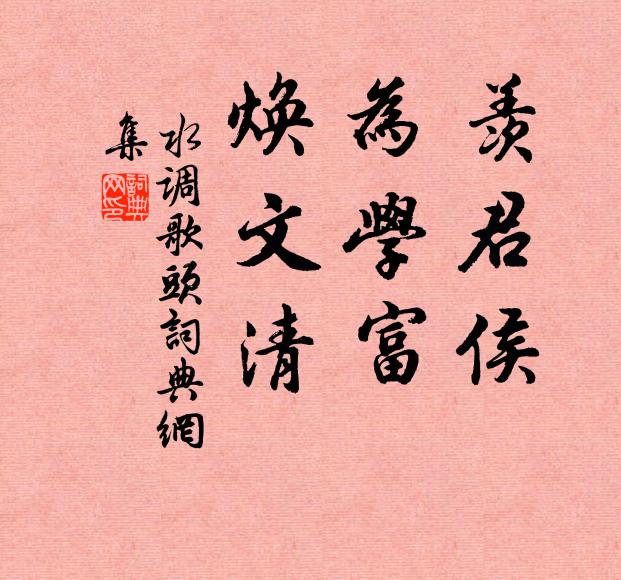 羨君侯
為學富
煥文清
水調歌頭詞典網
集
詞典
网印